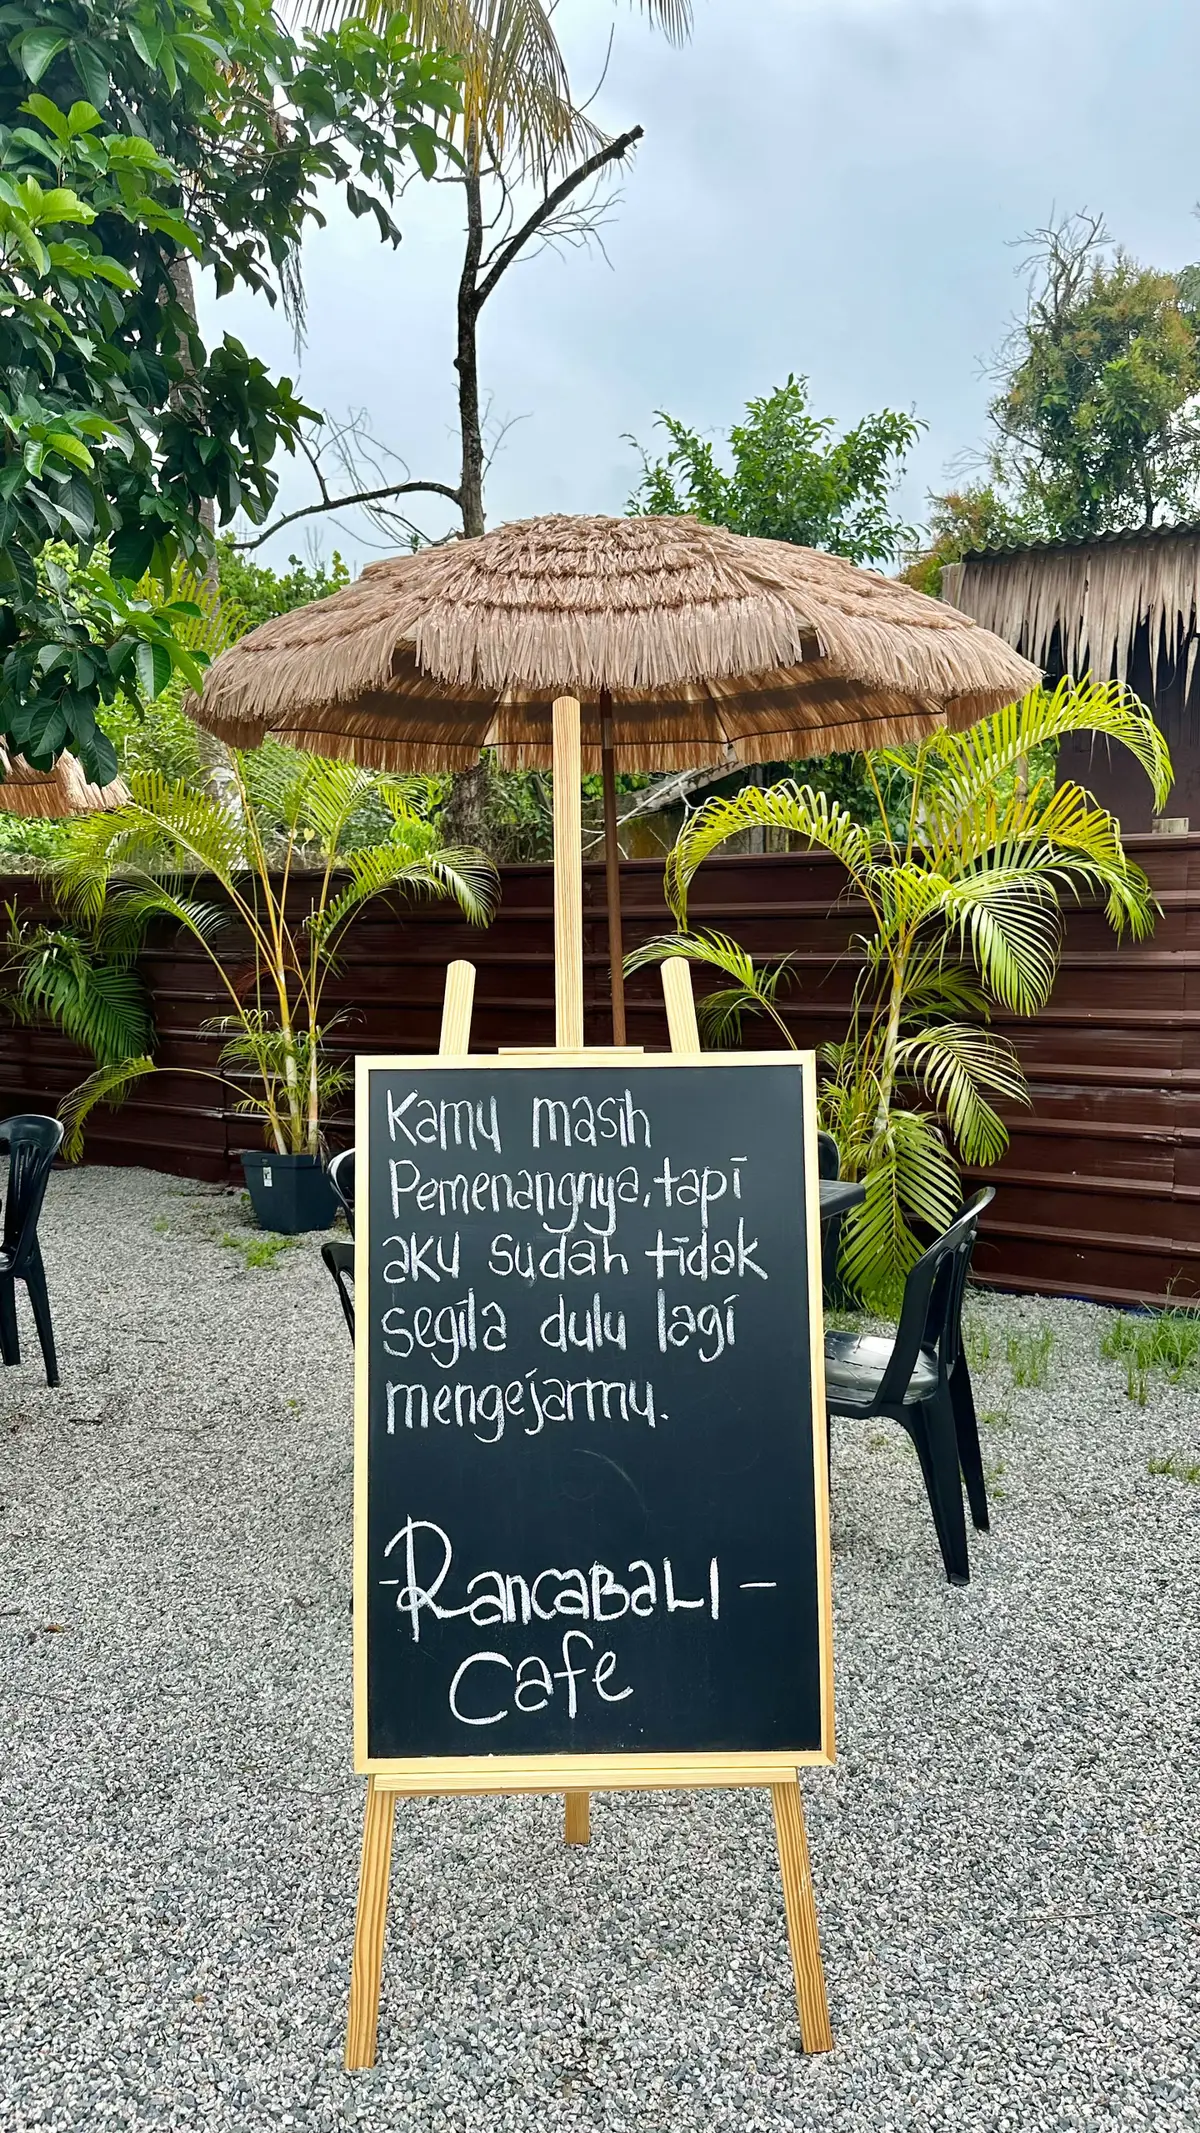 Kamu masih
Pemenangnya, tapi
aku sudah tidak
segila dulu lagi
mengejarmu.
-RancaBaLI-
Cafe